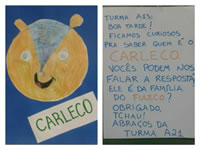 CARLECO
TURMA A23:
BOA TARDE!
FICAMOS CURIOSOS
PRA SABER QUEM É O
CARLECO.
VOCÊS PODEM NOS
FALAR A RESPOSTA?
ELE É DA FAMÍLIA
DO FULECO?
OBRIGADO,
TCHAU!
ABRAÇOS DA
TURMA A21